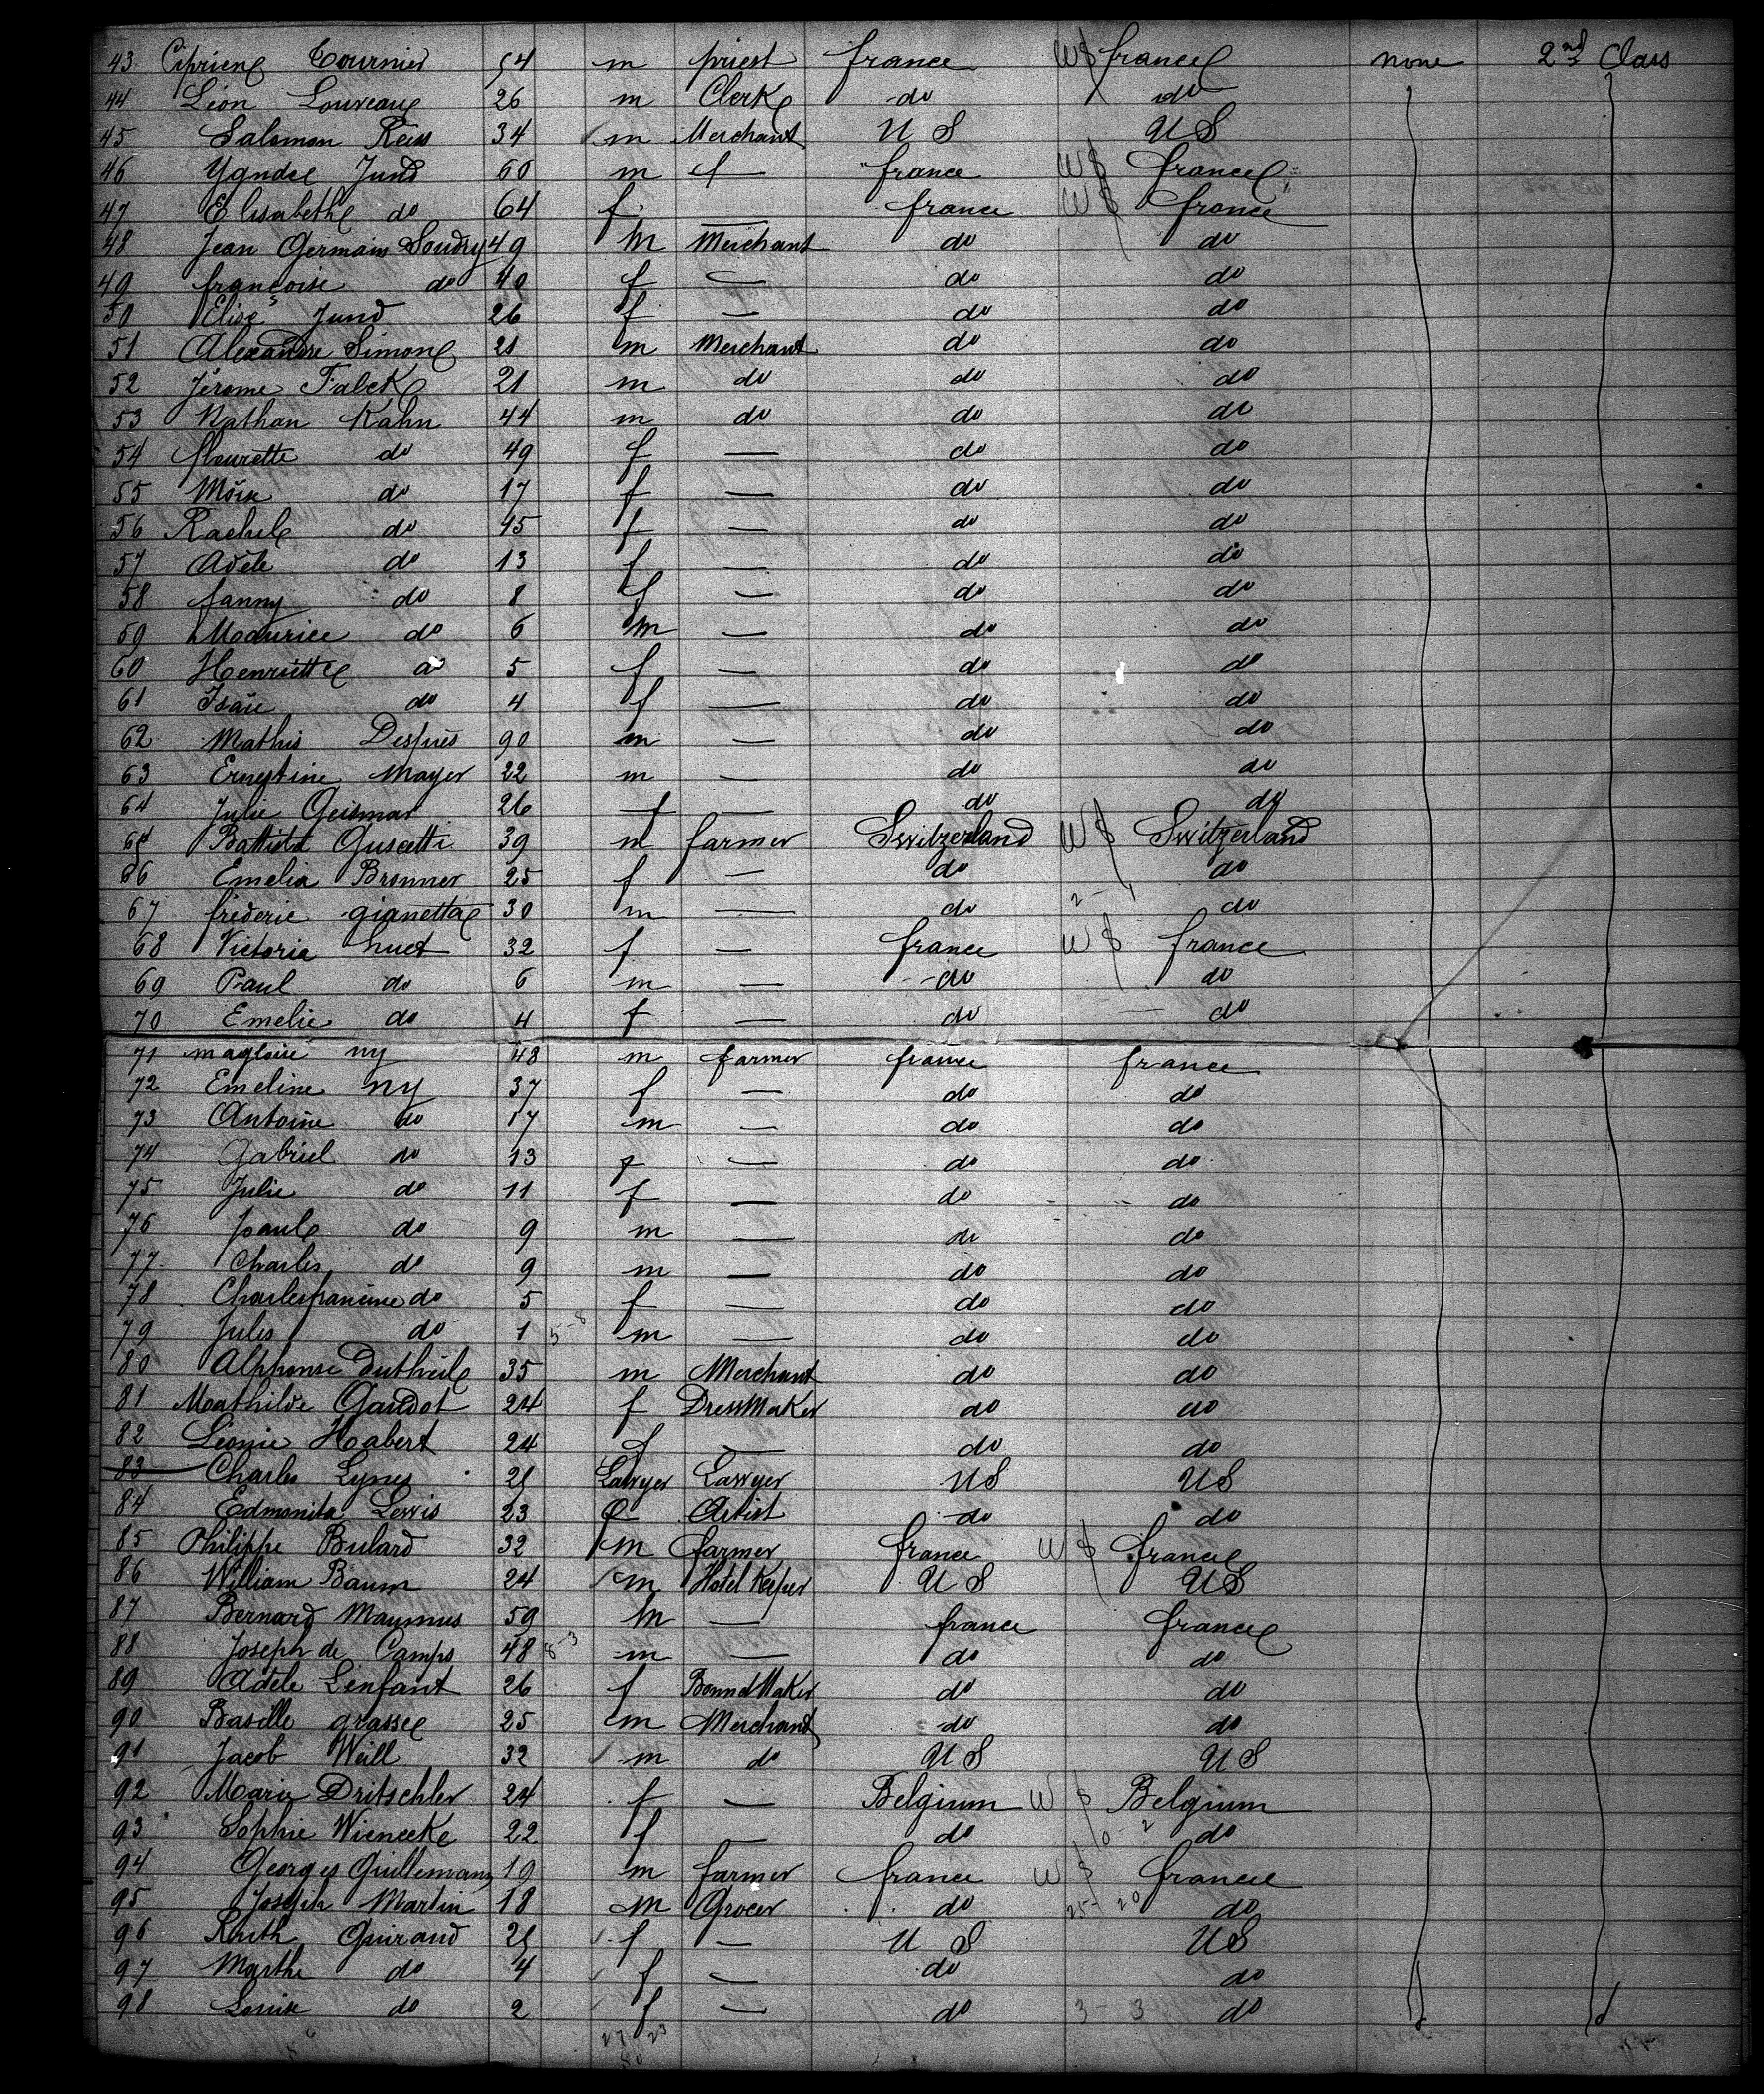 43 Ciprien Tournier 54 m priest france W france none 2nd Class
44 Léon Louveau 26 m Clerk do do
45 Salomon Reiss 34 m Merchant U S U S
46 Jund 60 m france W france
47 Elisabeth do 64 f — france W france
48 Jean Germain Soudry 49 m Merchant do do
49 françoise do 40 f — do do
50 Elise Jund 26 f — do do
51 Alexandre Simon 21 m Merchant do do
52 Jérome Falck 21 m do do do
53 Nathan Kahn 44 m do do do
54 fleurette do 49 f — do do
55 do 17 f — do do
56 Rachel do 15 f — do do
57 Adèle do 13 f — do do
58 fanny do 8 f — do do
59 Maurice do 6 m — do do
60 Henriette do 5 f — do do
61 do 4 f — do do
62 Mathis 90 m — do do
63 Ernestine Mayer 22 m — do do
64 Julie Geismar 26 f — do do
65 Battista Guscetti 39 m farmer Switzerland W Switzerland
66 Emelia Bronner 25 f — do do
67 fréderic gianetta 30 m — do do
68 Victoria huet 32 f — france W france
69 Paul do 6 m — do do
70 Emelie do 4 f — do do
71 magloire ny 48 m farmer france france
72 Emeline ny 37 f — do do
73 Antoine do 17 m — do do
74 Gabriel do 13 f — do do
75 Julie do 11 f — do do
76 paul do 9 m — do do
77 Charles do 9 m — do do
78 Charlesfrancine do 5 f — do do
79 Jules do 1 5-8 m — do do
80 Alphonse Dutheil 35 m Merchant do do
81 Mathilde Gaudot 24 f DressMaker do do
82 Léonie Habert 24 f — do do
83 Charles Lynes 21 Lawyer Lawyer U S U S
84 Edmonita Lewis 23 f Artist do do
85 Philippe Bulard 32 m farmer france W france
86 William Baum 24 m Hotel Keeper U S U S
87 Bernard Maumus 59 m — france france
88 Joseph de Camps 48 8-3 m — do do
89 Adele Lenfant 26 f BonnetMaker do do
90 Basille grasse 25 m Merchant do do
91 Jacob Weill 32 m do U S U S
92 Marie Dritschler 24 f — Belgium W Belgium
93 Sophie Wienecke 22 f — do 10-2 do
94 Georges Guillemanz 19 m farmer france W france
95 Joseph Martin 18 m Grocer do 25-20 do
96 Ruth Guiraud 21 f — U S U S
97 Marthe do 4 f — do do
98 Louise do 2 f — do 3-3 do
27 23
80